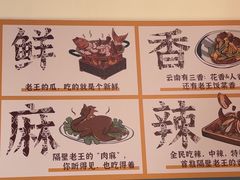 鲜
老王的瓜，吃的就是个新鲜
香
云南有三香：花香&人
还有老王饭菜香
麻
隔壁老王的“肉麻”
你听得见，也吃得着
辣
全民吃辣，中辣，特
首推隔壁老王的